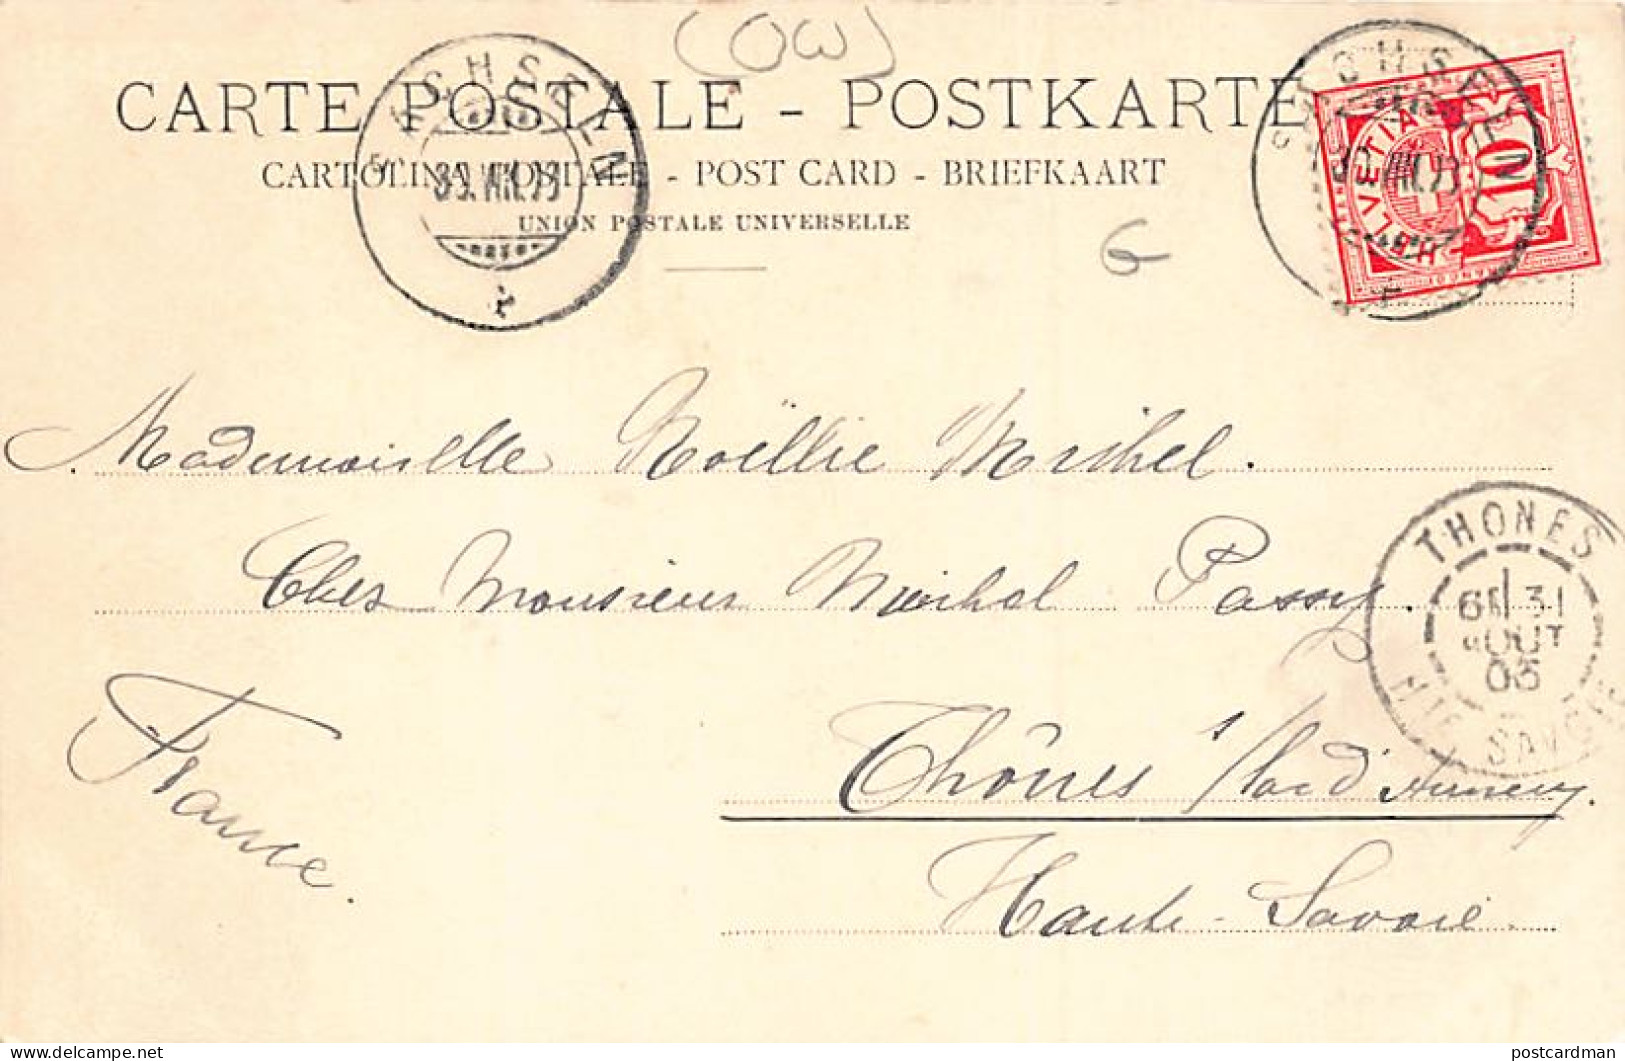 (OW)
CARTE POSTALE - POSTKARTE
CARTOLINA POSTALE - POST CARD - BRIEFKAART
UNION POSTALE UNIVERSELLE
G
SACHSELN
SACHSELN
HELVETIA
10
Mademoiselle Noëllie Michel.
Chez Monsieur Michel Passy.
THONES
31
AOUT
03
HTE SAVOIE
Thônes s/lac d'Annecy.
Haute-Savoie.
France.
delcampe.net
postcardman